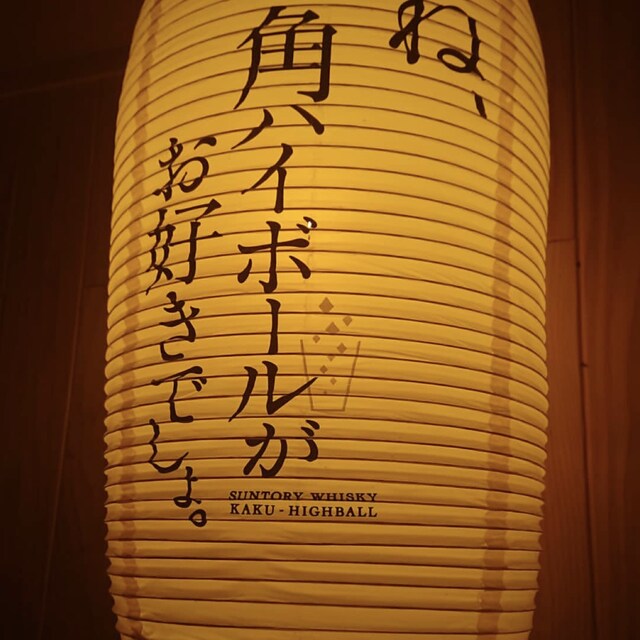 ね、
角ハイボールが
お好きでしょ。
SUNTORY WHISKY
KAKU-HIGHBALL